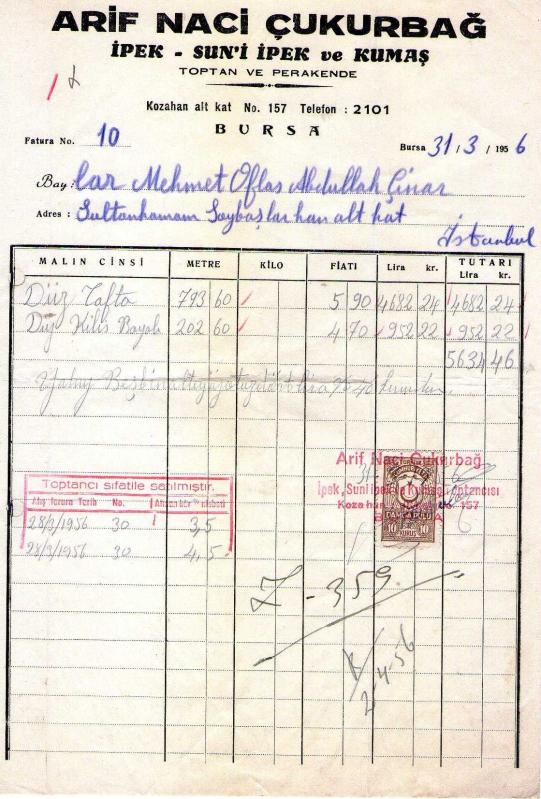 ARİF NACİ ÇUKURBAĞ
İPEK - SUN'İ İPEK ve KUMAŞ
TOPTAN VE PERAKENDE
Kozahan alt kat No. 157 Telefon : 2101
BURSA
Fatura No. 10
Bursa 31 / 3 / 1956
Bay: lar Mehmet Oflas Abdullah Çınar
Adres : Sultanhamam Saybaşlar han alt kat
İstanbul
MALIN CİNSİ METRE KİLO FİATI Lira kr. TUTARI Lira kr.
Düz Tafta 793 60 5 90 4682 24 4682 24
Düz Kilis Bayalı 202 60 4 70 952 22 952 22
5634 46
Yalnız Beşbinaltıyüzotuzdört lira % 46 kuruştur.
Arif Naci Çukurbağ
İpek, Suni ipek ve Kumaş Toptancısı
Kozahan No. 157
BURSA
10 KURUŞ 10
Toptancı sıfatile satılmıştır.
Alış fatura Tarih No. Azami kâr % nisbeti
28/3/1956 30 3,5
28/3/1956 30 4,5
Z - 359
2-4-56